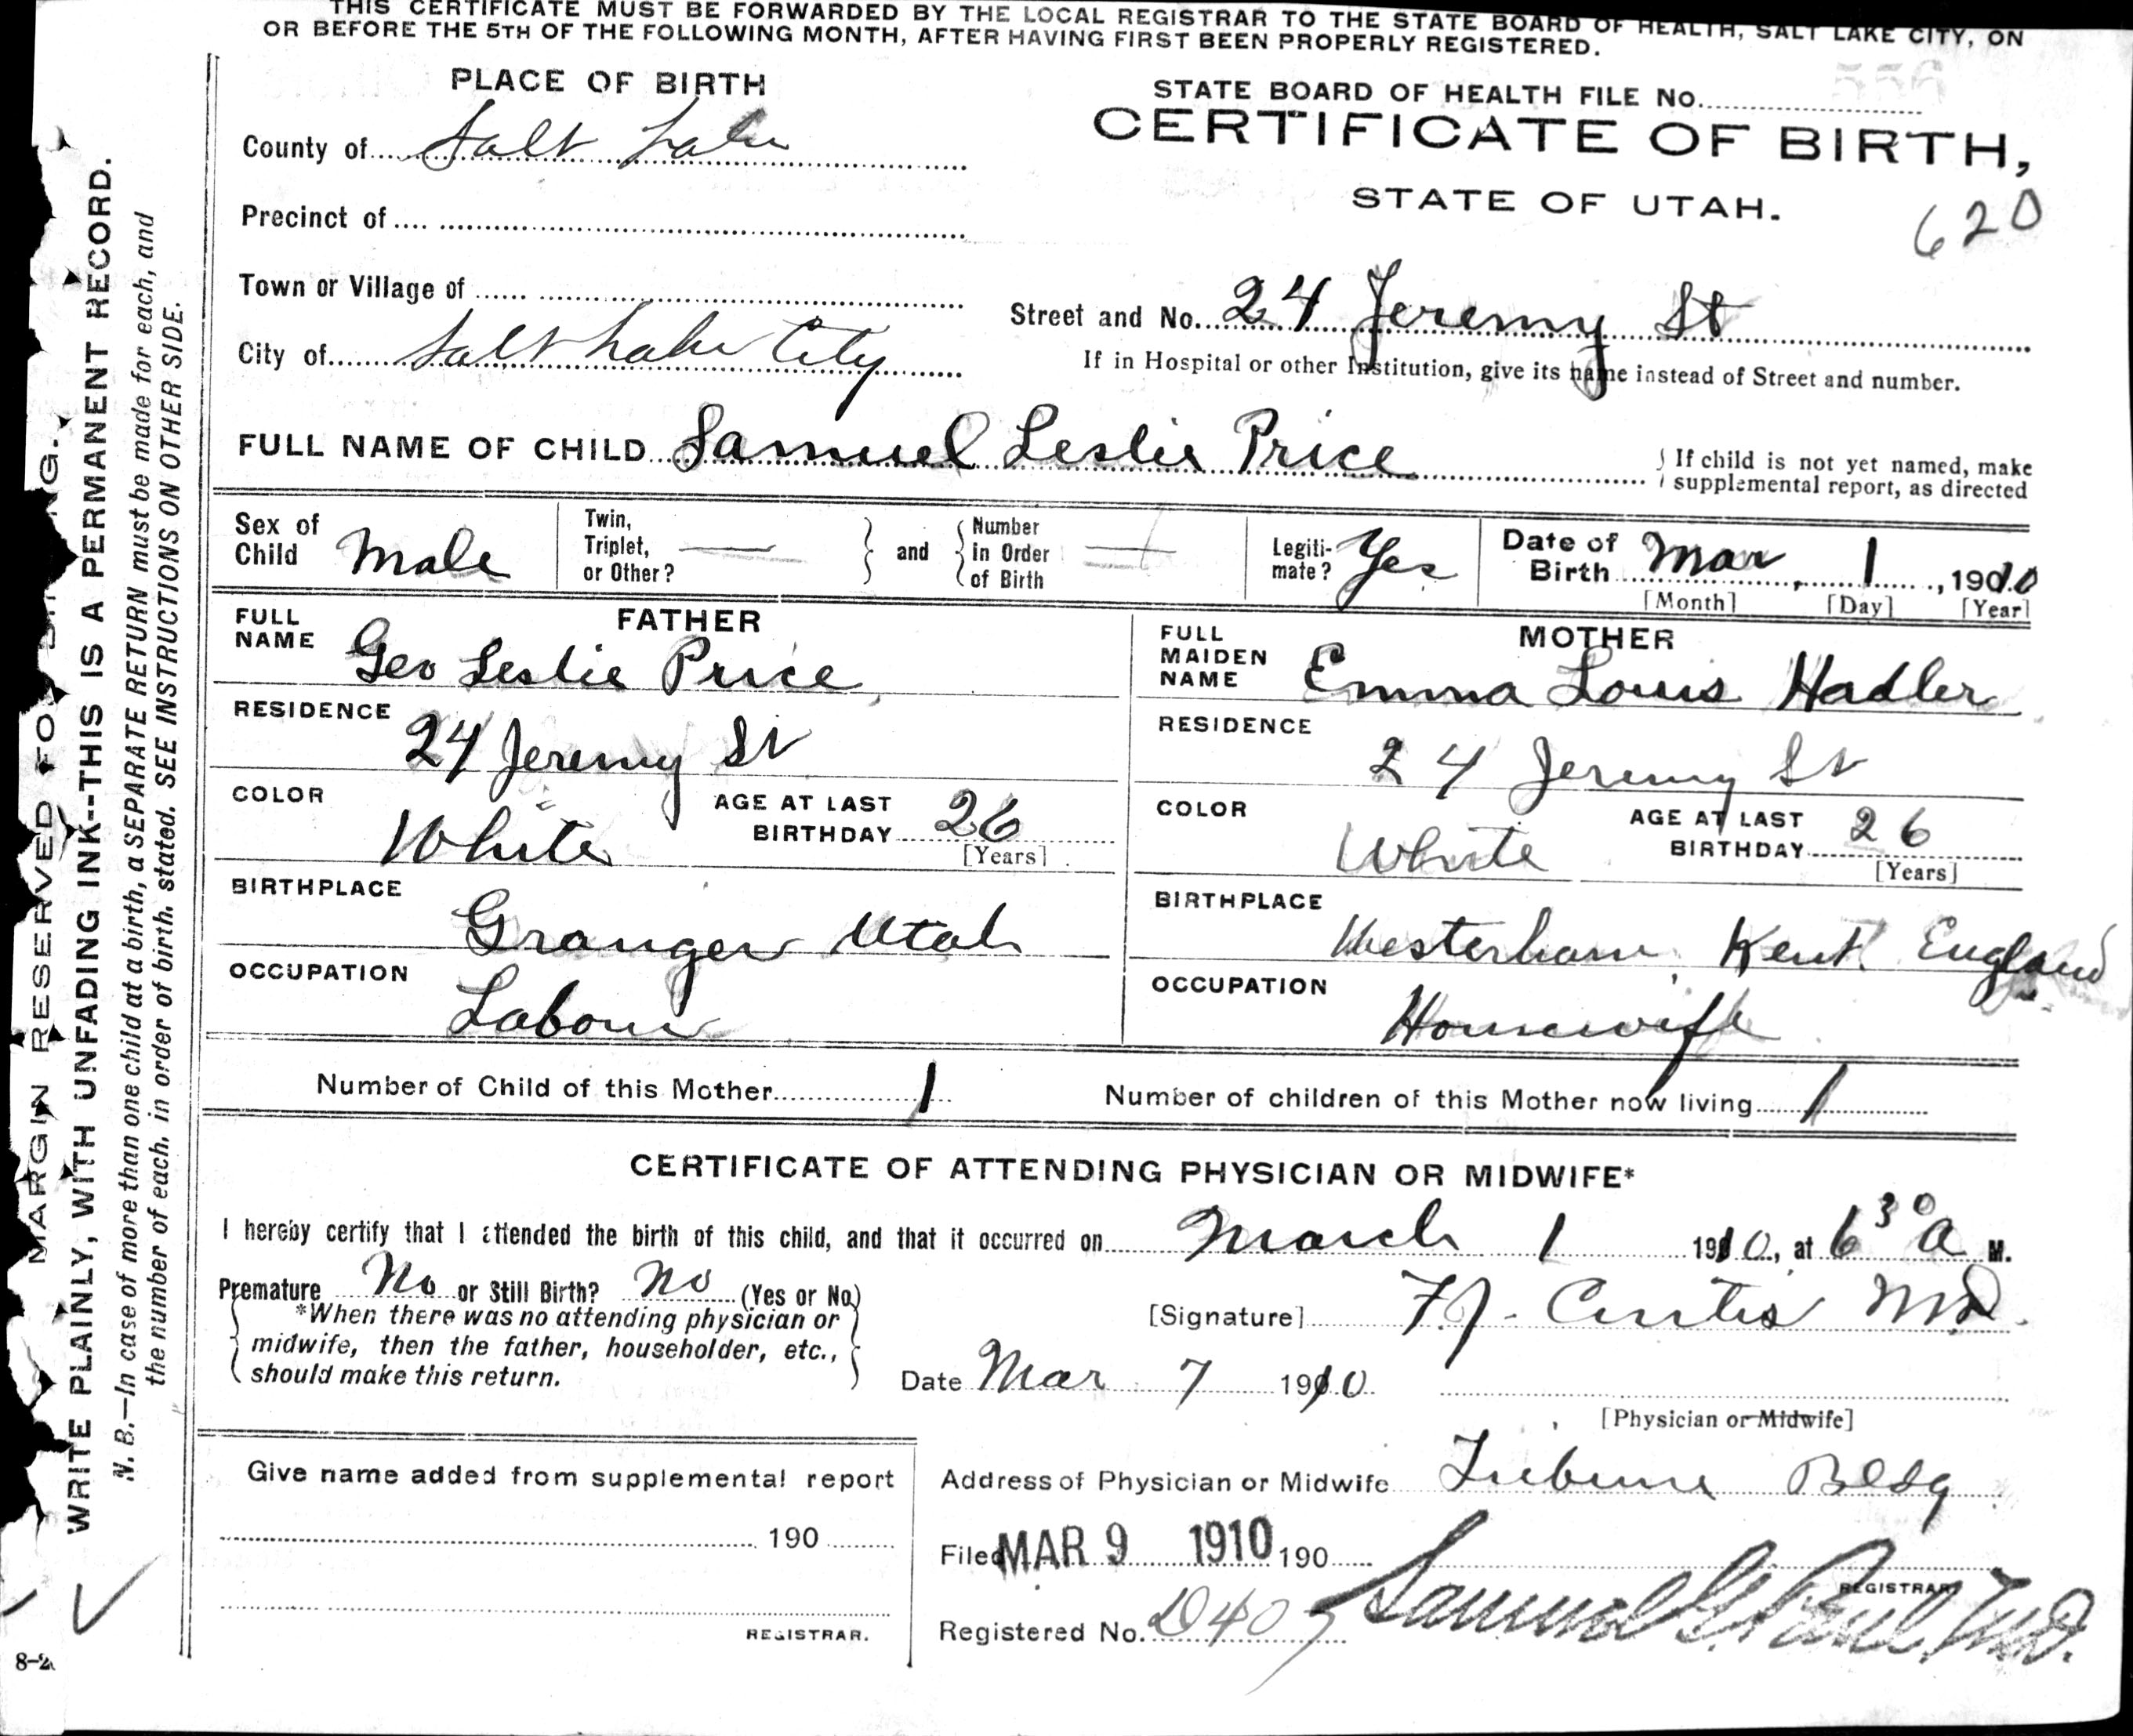 THIS CERTIFICATE MUST BE FORWARDED BY THE LOCAL REGISTRAR TO THE STATE BOARD OF HEALTH, SALT LAKE CITY, ON
OR BEFORE THE 5TH OF THE FOLLOWING MONTH, AFTER HAVING FIRST BEEN PROPERLY REGISTERED.
PLACE OF BIRTH
STATE BOARD OF HEALTH FILE No. 556
County of Salt Lake
CERTIFICATE OF BIRTH,
STATE OF UTAH.
620
Precinct of
Town or Village of
Street and No. 24 Jeremy St
City of Salt Lake City
If in Hospital or other Institution, give its name instead of Street and number.
FULL NAME OF CHILD Samuel Leslie Price
If child is not yet named, make
supplemental report, as directed
Sex of
Child Male
Twin,
Triplet,
or Other?
and
Number
in Order
of Birth
Legiti-
mate? Yes
Date of
Birth Mar 1, 1910
[Month] [Day] [Year]
FATHER
FULL
NAME Geo Leslie Price
RESIDENCE
24 Jeremy St
COLOR
White
AGE AT LAST
BIRTHDAY 26
[Years]
BIRTHPLACE
Granger Utah
OCCUPATION
Labour
MOTHER
FULL
MAIDEN
NAME Emma Louis Hadler
RESIDENCE
24 Jeremy St
COLOR
White
AGE AT LAST
BIRTHDAY 26
[Years]
BIRTHPLACE
Westerham, Kent. England
OCCUPATION
Housewife
Number of Child of this Mother 1
Number of children of this Mother now living 1
CERTIFICATE OF ATTENDING PHYSICIAN OR MIDWIFE*
I hereby certify that I attended the birth of this child, and that it occurred on March 1 1910, at 6 30 a M.
Premature No or Still Birth? No (Yes or No)
*When there was no attending physician or
midwife, then the father, householder, etc.,
should make this return.
[Signature] F.J. Curtis MD.
Date Mar 7 1910
[Physician or Midwife]
Give name added from supplemental report
190
REGISTRAR.
Address of Physician or Midwife Tribune Bldg
Filed MAR 9 1910 190
REGISTRAR
Registered No.
Samuel G. Paul, M.D.
MARGIN RESERVED FO
NG.
WRITE PLAINLY, WITH UNFADING INK--THIS IS A PERMANENT RECORD.
N. B.—In case of more than one child at a birth, a SEPARATE RETURN must be made for each, and
the number of each, in order of birth, stated. SEE INSTRUCTIONS ON OTHER SIDE.
8-2